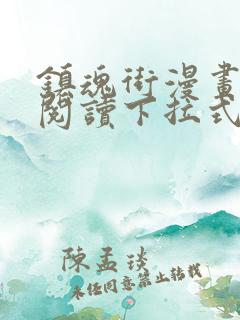 鎮魂街漫畫
閱讀下拉式
陳孟琰
未經同意禁止轉載